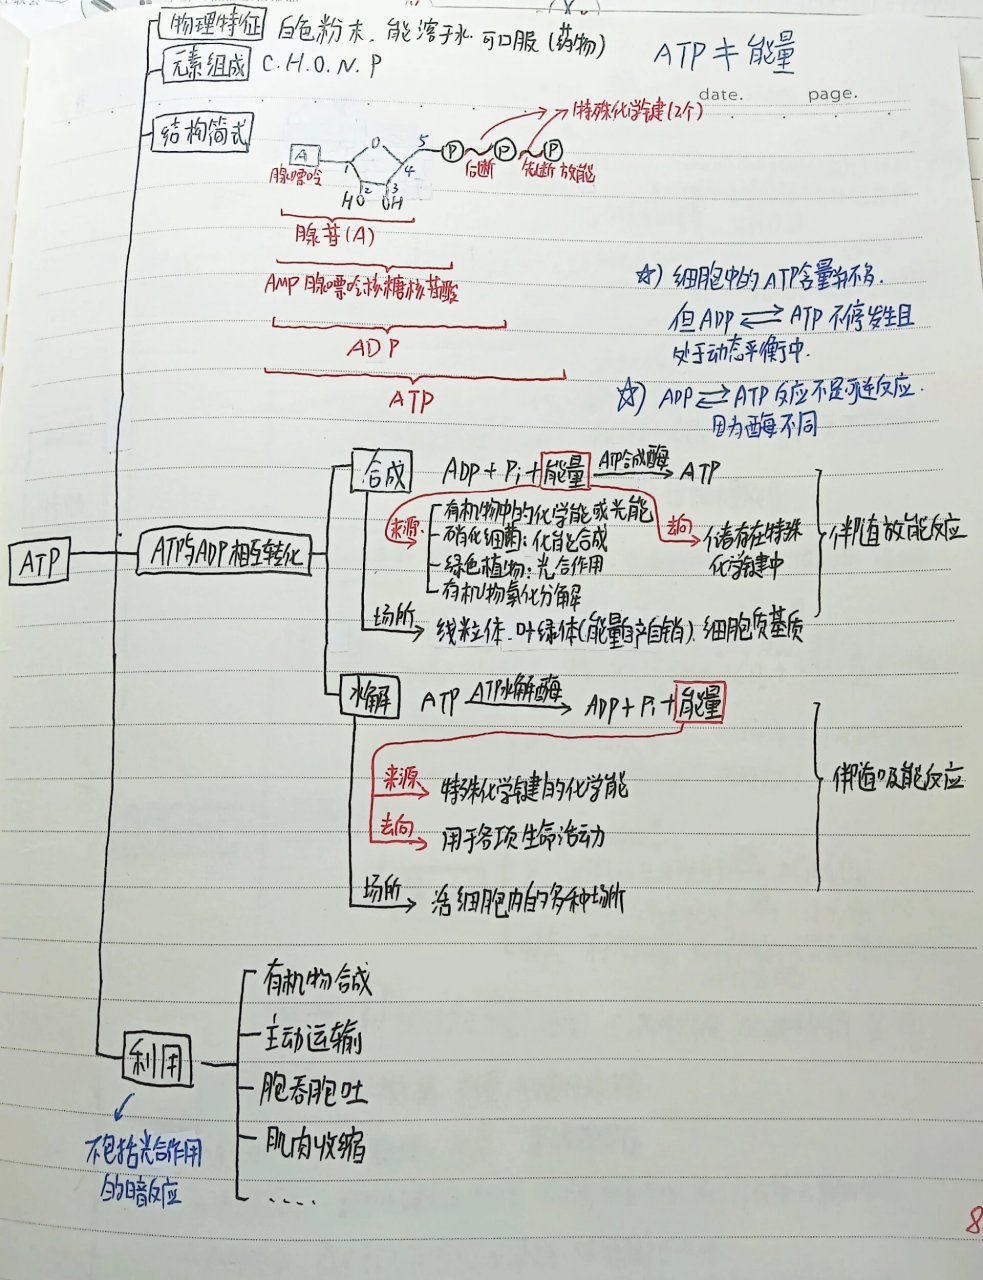 物理特征 白色粉末、能溶于水 可口服(药物)
ATP≠能量
元素组成 C.H.O.N.P
date. page.
结构简式
特殊化学键(2个)
A O 5 P P P
1 4 2 3
腺嘌呤 后断 先断 放能
HO OH
腺苷(A)
AMP 腺嘌呤核糖核苷酸
ADP
ATP
☆) 细胞中的ATP含量并不多.
但ADP⇌ATP不停发生且
处于动态平衡中.
☆) ADP⇌ATP反应不是可逆反应.
因为酶不同
ATP
ATP与ADP相互转化
合成 ADP+Pi+能量 ATP合成酶→ ATP
来源 有机物中的化学能或光能
硝化细菌:化能合成
绿色植物:光合作用
有机物氧化分解
去向 储存在特殊
化学键中
伴随放能反应
场所 线粒体、叶绿体(能量自产自销)、细胞质基质
水解 ATP ATP水解酶→ ADP+Pi+能量
来源 特殊化学键的化学能
去向 用于各项生命活动
伴随吸能反应
场所 活细胞内的多种场所
利用
有机物合成
主动运输
胞吞胞吐
肌肉收缩
....
不包括光合作用
的暗反应
8